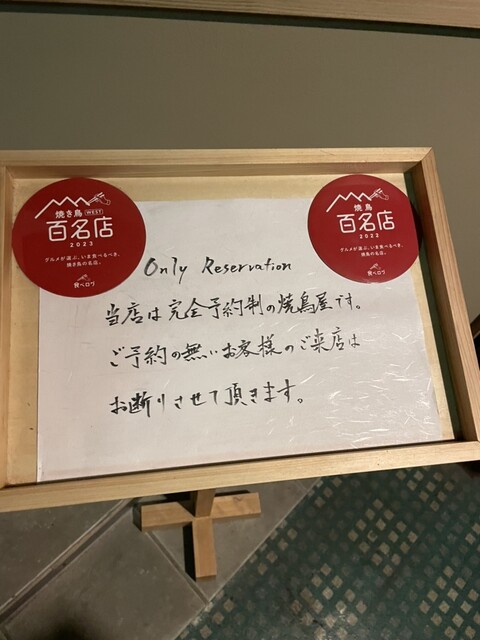 焼き鳥 WEST
百名店
2023
グルメが選ぶ、いま食べるべき、
焼き鳥の名店。
食べログ
焼鳥
百名店
2022
グルメが選ぶ、いま食べるべき、
焼鳥の名店。
食べログ
Only Reservation
当店は完全予約制の焼鳥屋です。
ご予約の無いお客様のご来店は
お断りさせて頂きます。